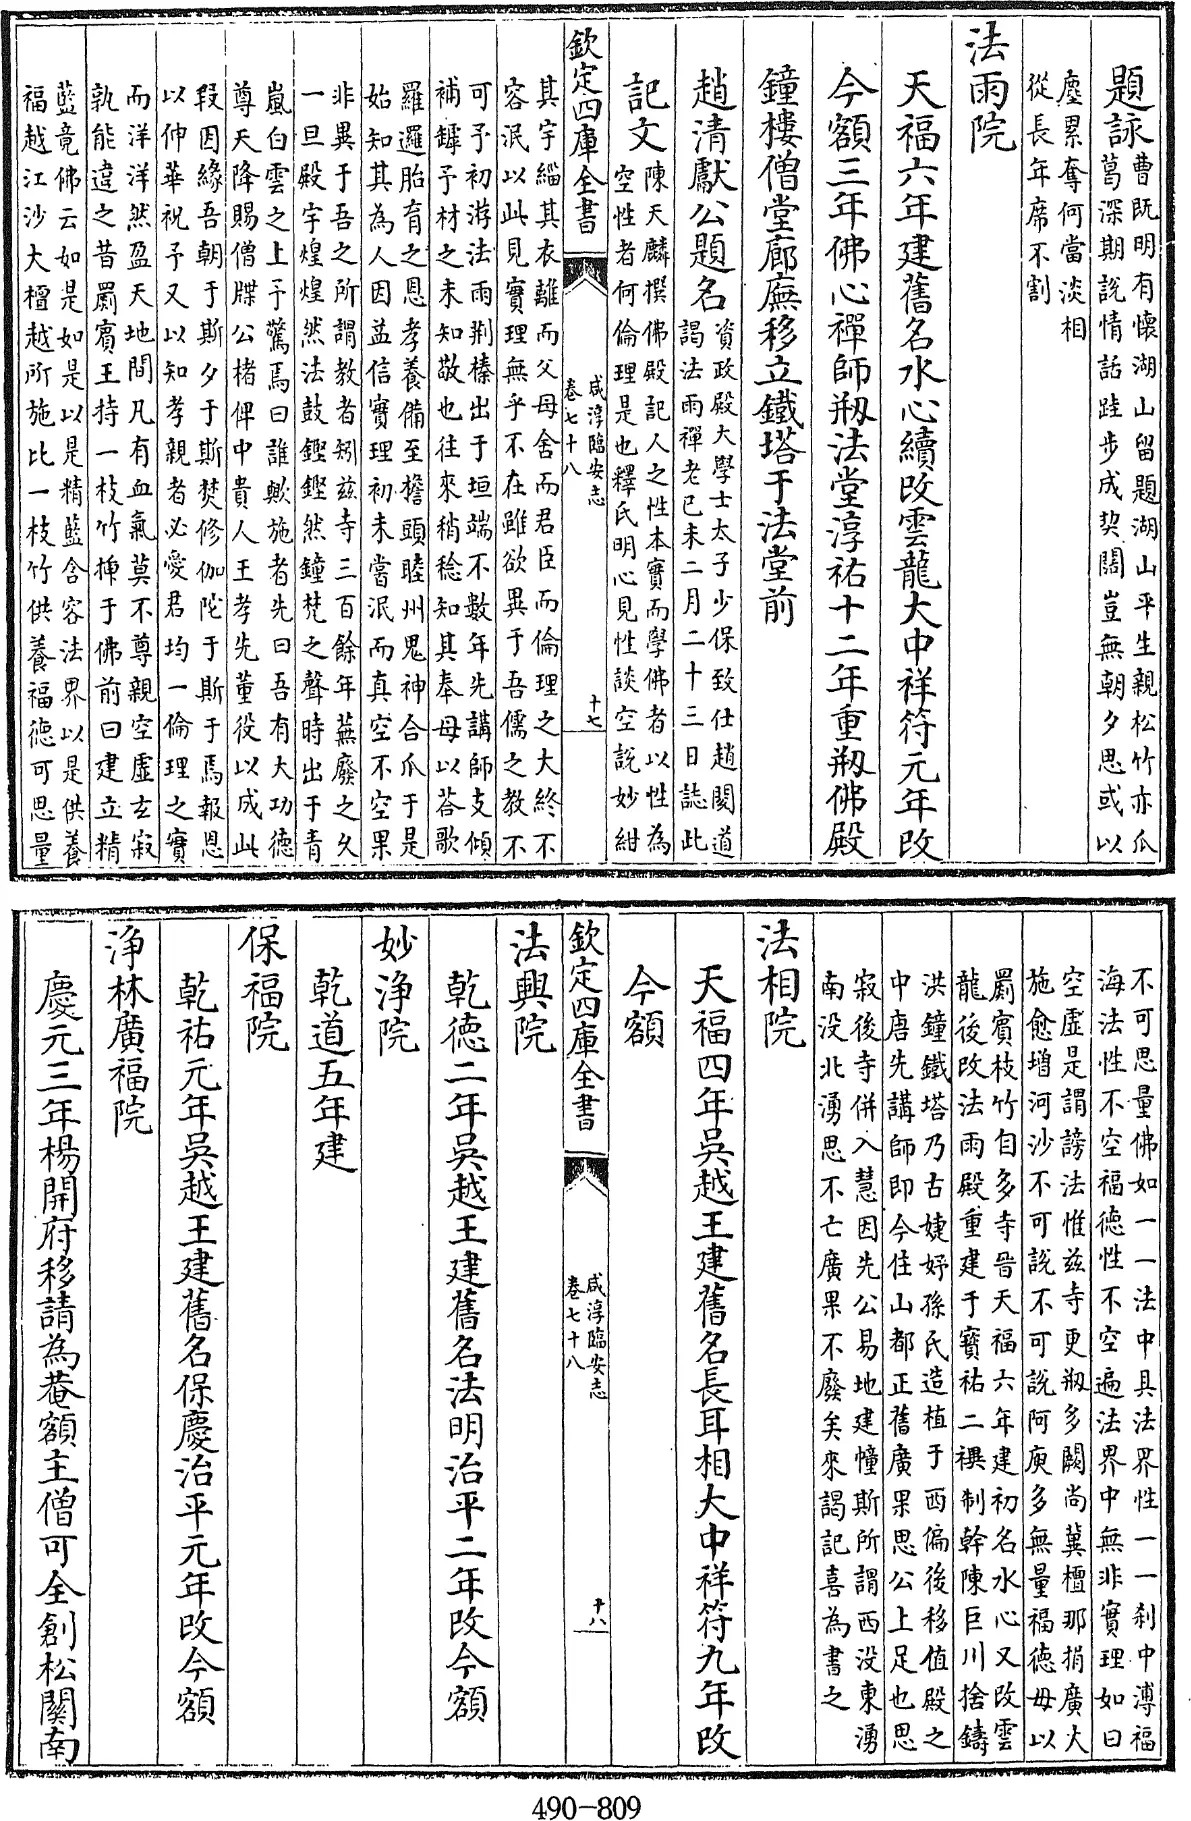 題詠曹既明有懷湖山留題湖山平生親松竹亦爪
葛深期說情話跬步成契闊豈無朝夕思或以
塵累奪何當淡相
從長年席不割
法雨院
天福六年建舊名水心續改雲龍大中祥符元年改
今額三年佛心禪師剏法堂淳祐十二年重剏佛殿
鐘樓僧堂廊廡移立鐵塔于法堂前
趙清獻公題名資政殿大學士太子少保致仕趙閱道
謁法雨禪老已未二月二十三日誌此
記文陳天麟撰佛殿記人之性本實而學佛者以性為
空性者何倫理是也釋氏明心見性談空說妙紺
欽定四庫全書
咸淳臨安志
卷七十八
十七
其宇緇其衣離而父母舍而君臣而倫理之大終不
容泯以此見實理無乎不在雖欲異于吾儒之教不
可予初游法雨荆榛出于垣端不數年先講師支傾
補罅予材之未知敬也往來稍稔知其奉母以荅歌
羅邏胎育之恩孝養備至擔頭睦州鬼神合爪于是
始知其為人因益信實理初未嘗泯而真空不空果
非異于吾之所謂教者矧兹寺三百餘年蕪廢之久
一旦殿宇煌煌然法鼓鏗鏗然鐘梵之聲時出于青
嵐白雲之上予驚焉曰誰歟施者先曰吾有大功德
尊天降賜僧牒公楮俾中貴人王孝先董役以成此
叚因緣吾朝于斯夕于斯焚修伽陀于斯于焉報恩
以伸華祝予又以知孝親者必愛君均一倫理之實
而洋洋然盈天地間凡有血氣莫不尊親空虛玄寂
孰能違之昔罽賔王持一枝竹揷于佛前曰建立精
藍竟佛云如是如是以是精藍含容法界以是供養
福越江沙大檀越所施比一枝竹供養福德可思量
不可思量佛如一一法中具法界性一一刹中溥福
海法性不空福德性不空遍法界中無非實理如曰
空虛是謂謗法惟兹寺更剏多闕尚冀檀那捐廣大
施愈增河沙不可說不可說阿庾多無量福德毋以
罽賔枝竹自多寺晉天福六年建初名水心又改雲
龍後改法雨殿重建于寳祐二禩制幹陳巨川捨鑄
洪鐘鐵塔乃古婕妤孫氏造植于西偏後移值殿之
中唐先講師即今住山都正舊廣果思公上足也思
寂後寺併入慧因先公易地建幢斯所謂西没東湧
南没北湧思不亡廣果不廢矣來謁記喜為書之
法相院
天福四年吳越王建舊名長耳相大中祥符九年改
今額
欽定四庫全書
咸淳臨安志
卷七十八
十八
法興院
乾德二年吳越王建舊名法明治平二年改今額
妙淨院
乾道五年建
保福院
乾祐元年吳越王建舊名保慶治平元年改今額
淨林廣福院
慶元三年楊開府移請為菴額主僧可全創松關南
490-809